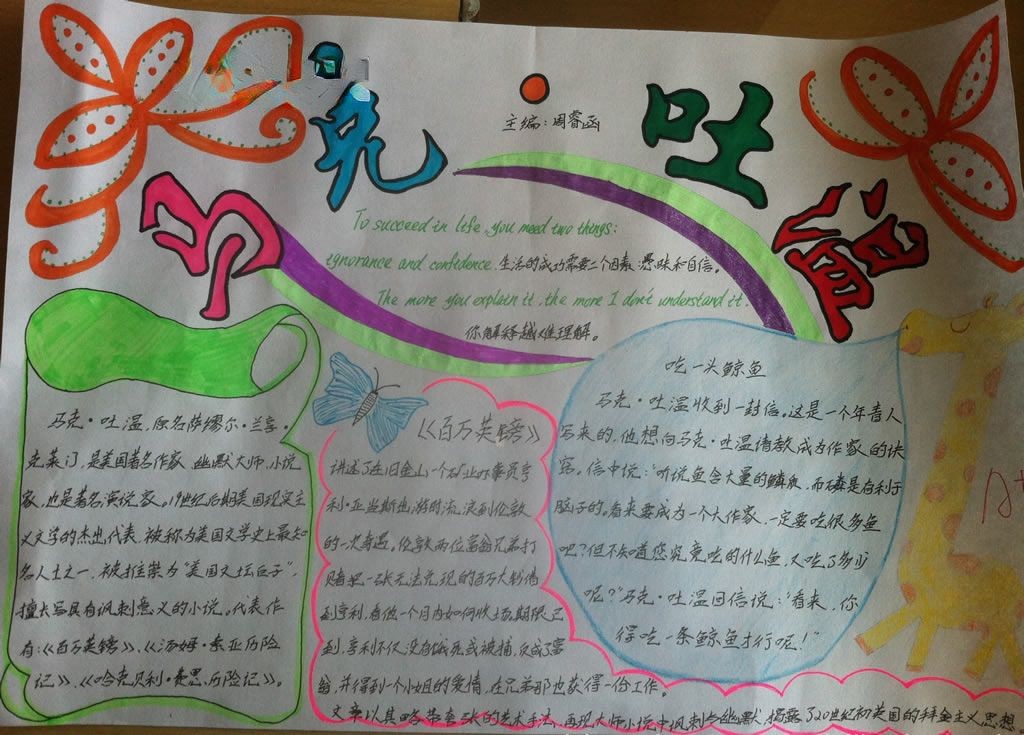 马克·吐温
主编:周睿函
To succeed in life, you need two things:
ignorance and confidence. 生活的成功需要二个因素:愚昧和自信。
The more you explain it, the more I don't understand it.
你解释越难理解。
马克·吐温,原名萨缪尔·兰亨·
克莱门,是美国著名作家、幽默大师、小说
家,也是著名演说家。19世纪后期美国现实主
义文学的杰出代表,被称为美国文学史上最知
名人士之一,被推崇为“美国文坛巨子”,
擅长写具有讽刺意义的小说。代表作
有:《百万英镑》、《汤姆·索亚历险
记》、《哈克贝利·费恩历险记》。
《百万英镑》
讲述了在旧金山一个矿业办事员亨
利·亚当斯出游时流浪到伦敦
的一次奇遇,伦敦两位富翁兄弟打
赌把一张无法兑现的百万大钞借
到亨利,看他一个月内如何收场,期限已
到,亨利不仅没有饿死或被捕,反成了富
翁,并得到一个小姐的爱情,在兄弟那也获得一份工作。
文章以其略带夸张的艺术手法,再现大师小说中讽刺与幽默,揭露了20世纪初英国的拜金主义思想.
吃一头鲸鱼
马克·吐温收到一封信。这是一个年青人
写来的,他想向马克·吐温请教成为作家的诀
窍。信中说:“听说鱼含大量的鳞质,而磷是有利于
脑子的。看来要成为一个大作家,一定要吃很多鱼
吧?但不知道您究竟吃的什么鱼,又吃了多少
呢?”马克·吐温回信说:“看来,你
得吃一条鲸鱼才行呢!”